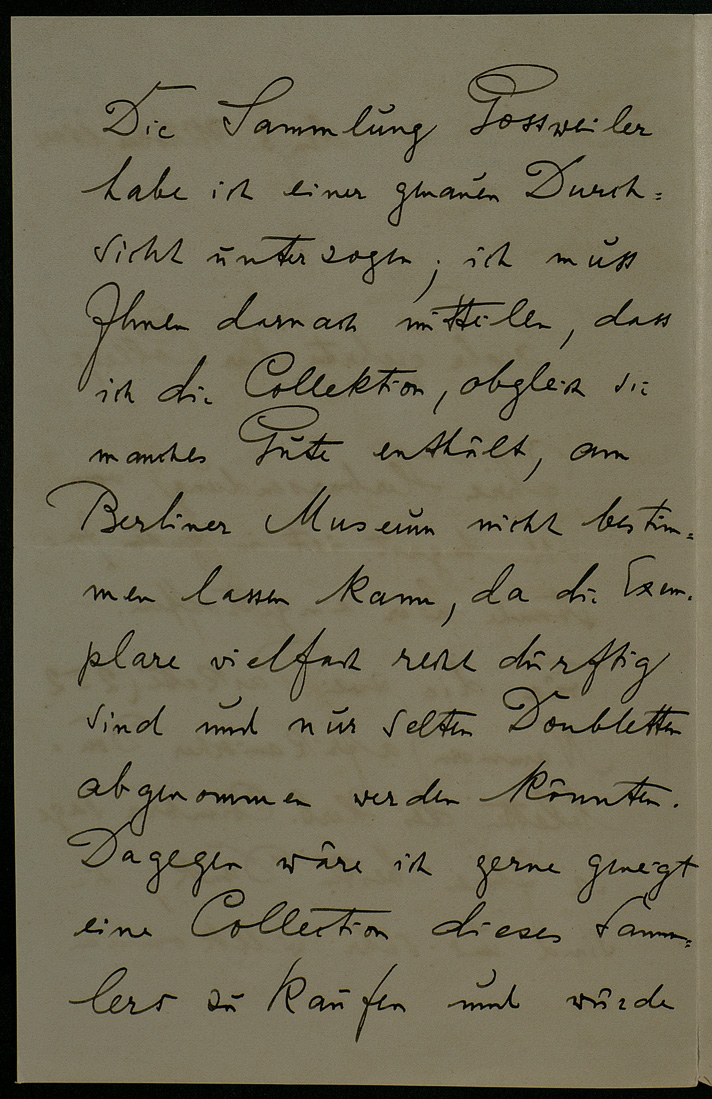 Die Sammlung Gossweiler
habe ich einer genauen Durch=
sicht unterzogen; ich muss
Ihnen darnach mitteilen, dass
ich die Collektion, obgleich sie
manches Gute enthält, am
Berliner Museum nicht bestim=
men lassen kann, da die Exem=
plare vielfach recht dürftig
sind und nur selten Doubletten
abgenommen werden könnten.
Dagegen wäre ich gerne geneigt
eine Collection dieses Samm=
lers zu kaufen und würde